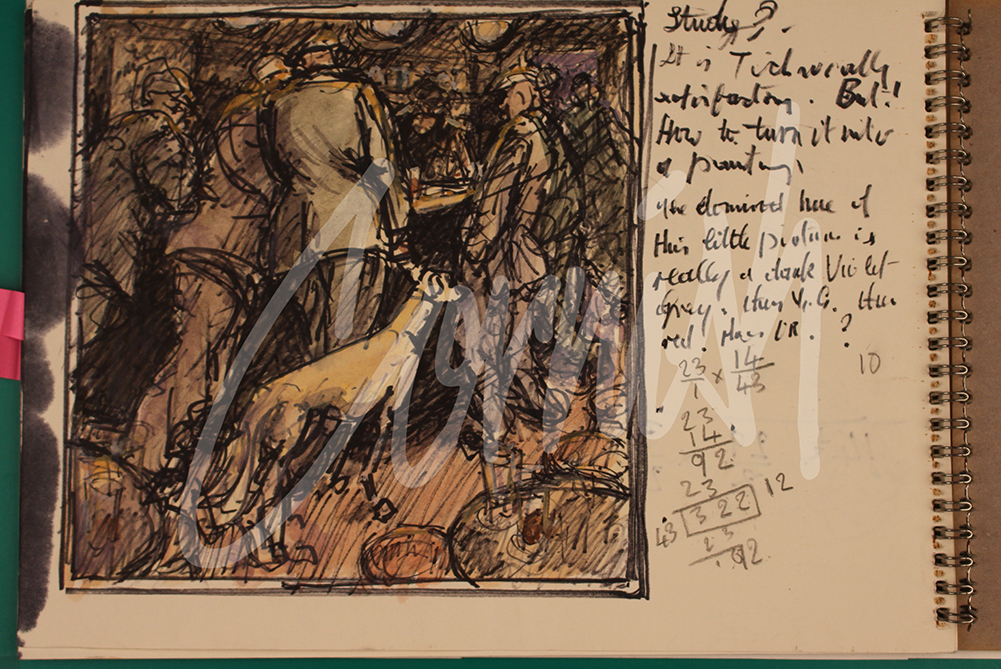 Study ?.
It is Technically
satisfactory. But!
How to turn it into
a painting,
The dominant hue of
this little picture is
really a dark Violet
Grey. then Y.G. then
red. then
?
23/1 x 14/43
10
23
14
92
23
12
43 322
23
.92
Cornish